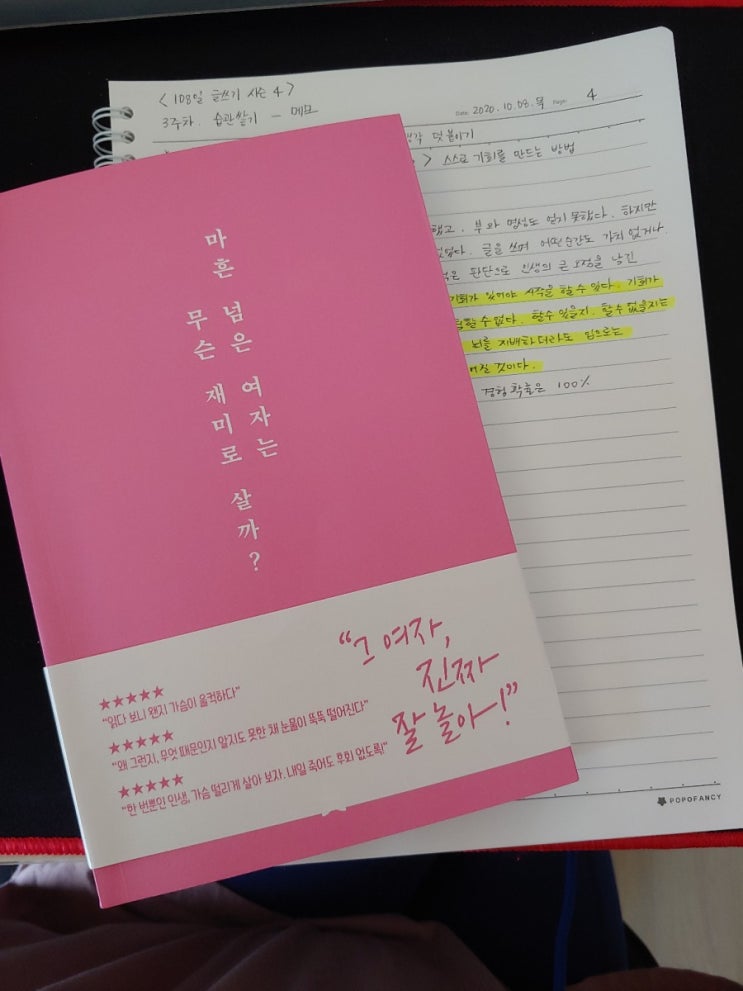 <108일 글쓰기 시즌 4>
3주차. 습관쌓기 - 메모
Date. 2020. 10. 08. 목 Page. 4
생각 덧붙이기
> 스스로 기회를 만드는 방법
했고, 부와 명성도 얻지 못했다. 하지만
없었다. 글을 쓰며 어떤 순간도 가치 없거나
은 판단으로 인생의 큰 오점을 남긴
기회가 있어야 시작을 할 수 있다. 기회가
할 수 없다. 할 수 있을지, 할 수 없을지는
뇌를 지배하더라도 입으로는
어질 것이다.
경험 확률은 100%
마흔 넘은 여자는
무슨 재미로 살까?
★★★★★
"읽다 보니 왠지 가슴이 울컥하다"
★★★★★
"왜 그런지, 무엇 때문인지 알지도 못한 채 눈물이 뚝뚝 떨어진다"
★★★★★
"한 번뿐인 인생, 가슴 떨리게 살아 보자. 내일 죽어도 후회 없도록!"
"그 여자,
진짜
잘 놀아~!"
POPOFANCY